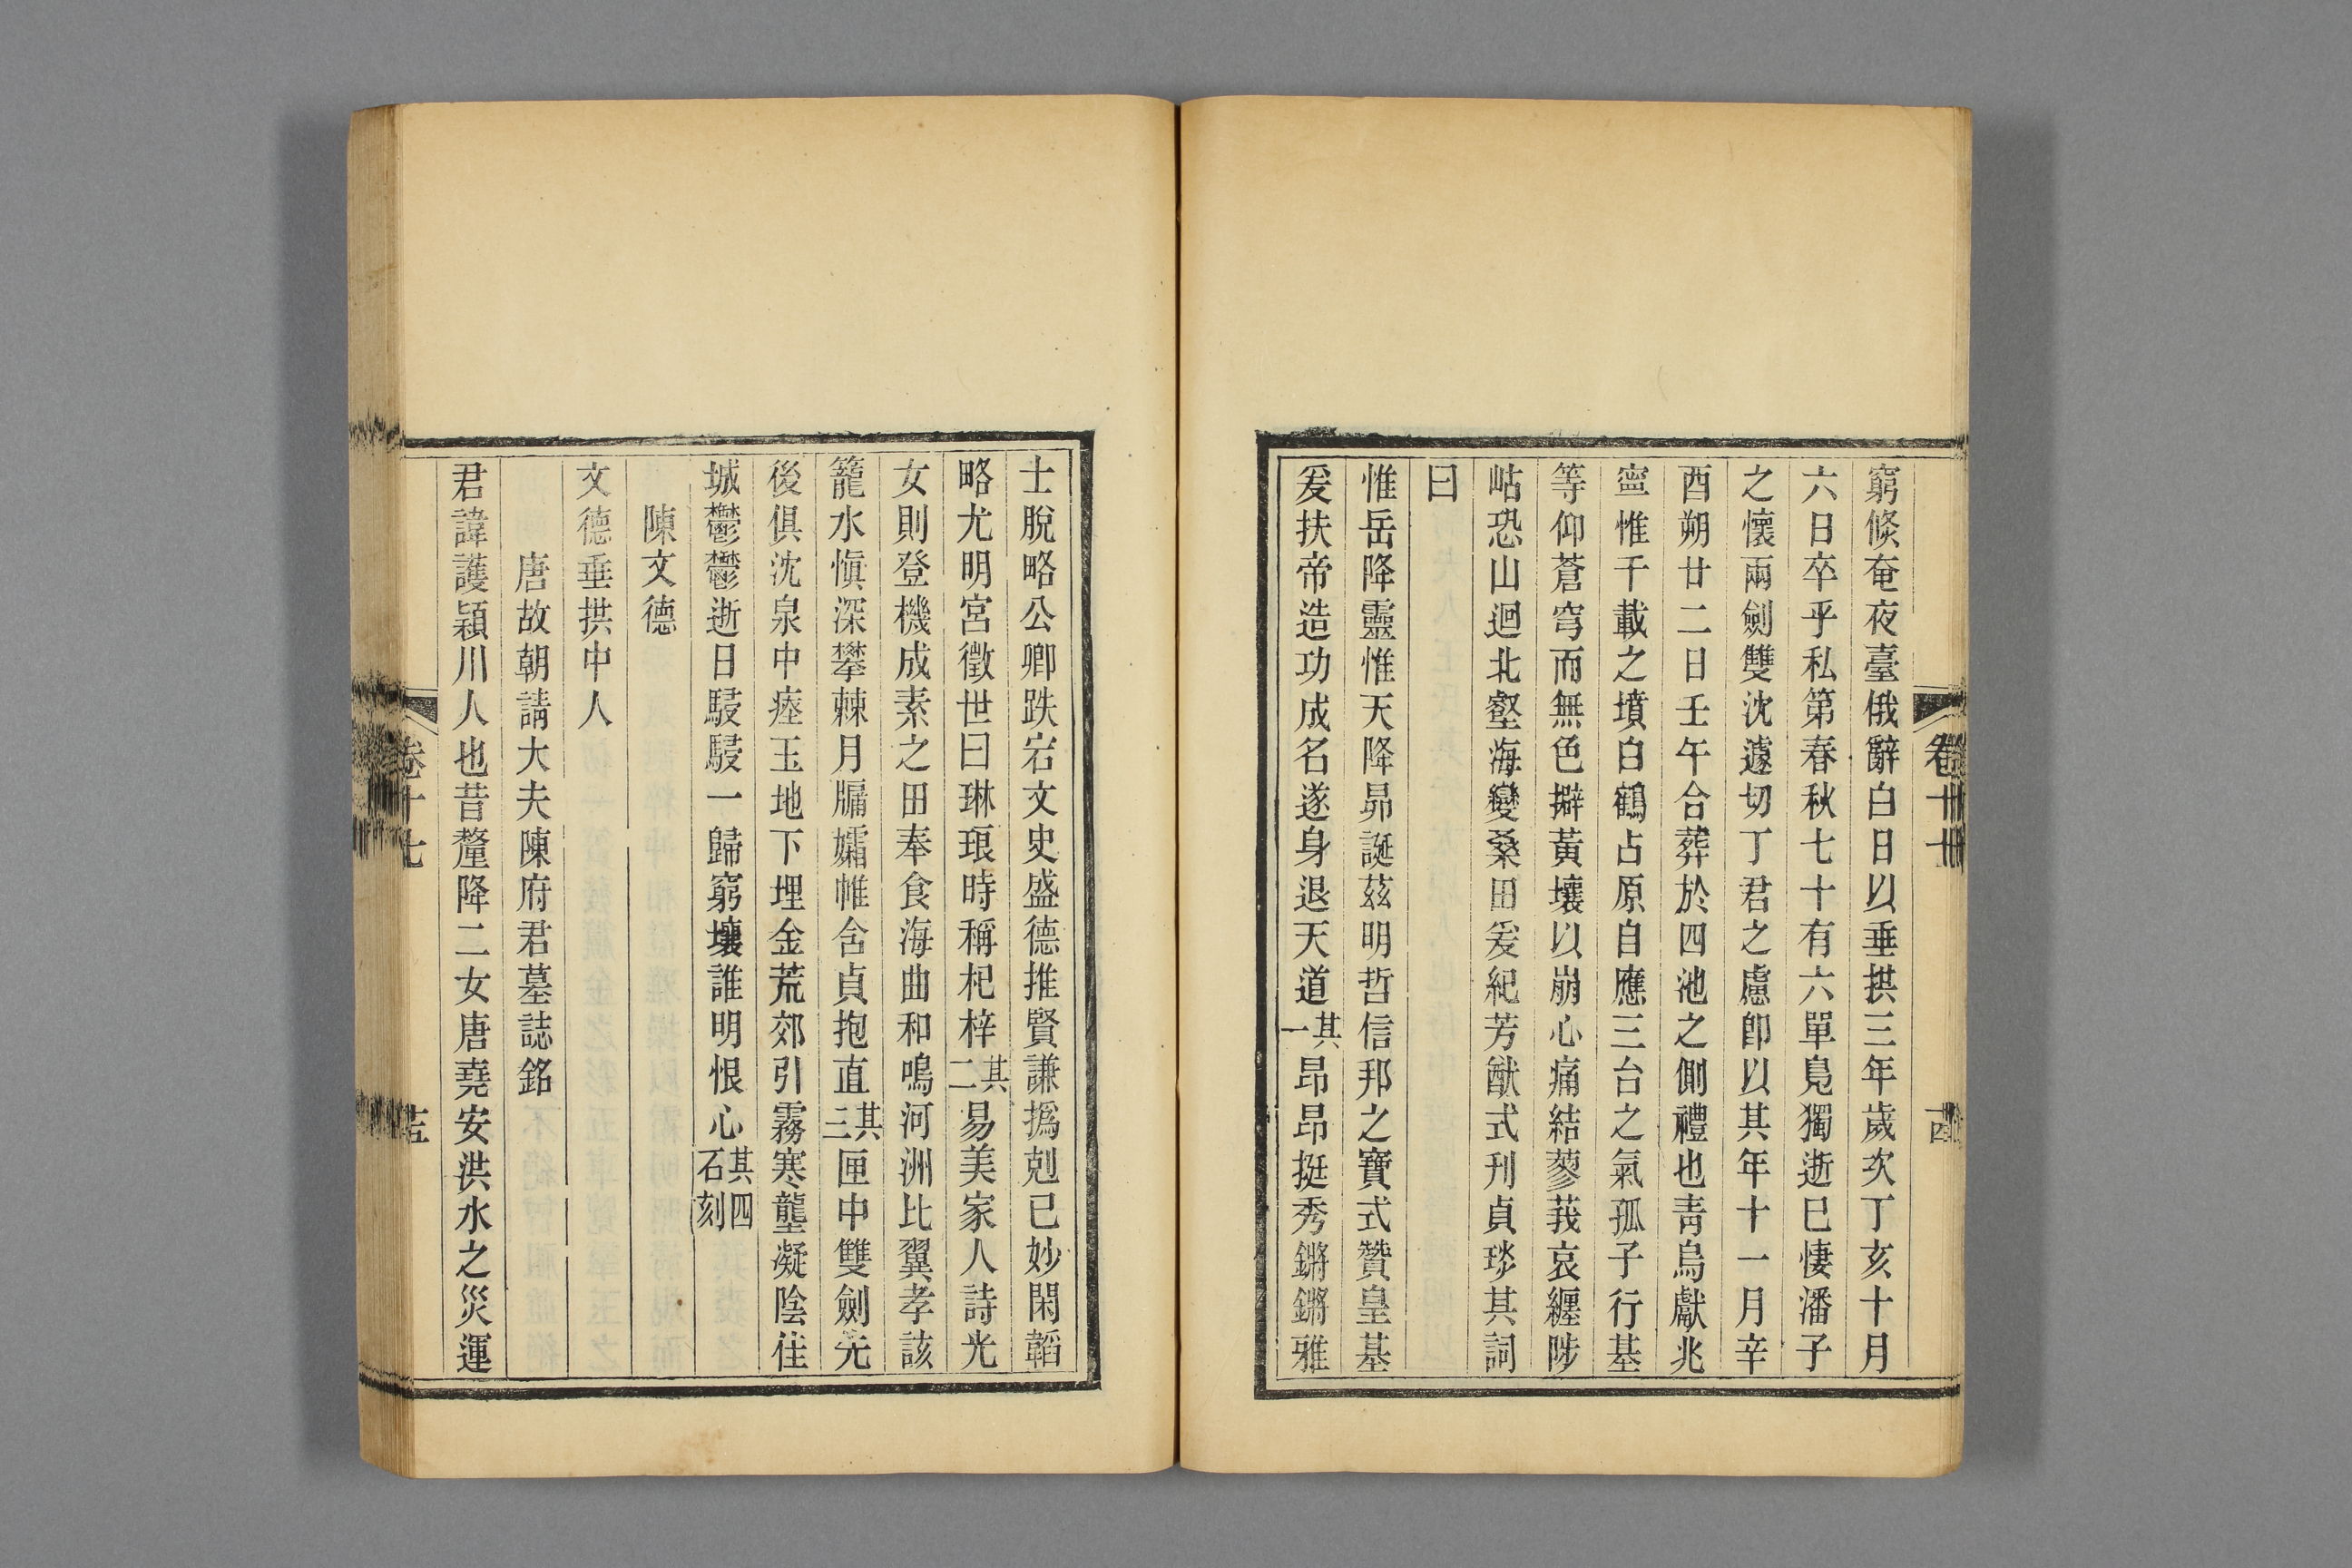 窮倐奄夜臺俄辭白日以垂拱三年歲次丁亥十月
六日卒乎私第春秋七十有六單鳧獨逝巳悽潘子
之懷兩劍雙沈遽切丁君之慮卽以其年十一月辛
酉朔廿二日壬午合葬於四池之側禮也靑烏獻兆
寍惟千載之墳白鶴占原自應三台之氣孤子行基
等仰蒼穹而無色擗黃壤以崩心痛結蓼莪哀纒陟
岵恐山迴北壑海變桑田爰紀芳猷式刊貞琰其詞
曰
惟岳降靈惟天降昴誕茲明哲信邦之寶式贊皇基
爰扶帝造功成名遂身退天道其一昂昂挺秀鏘鏘雅
士脫略公卿跌宕文史盛德推賢謙撝剋已妙閑韜
略尤明宮徵世曰琳琅時稱杞梓其二易美家人詩光
女則登機成素之田奉食海曲和鳴河洲比翼孝該
籠水愼深攀棘月牖孀帷含貞抱直其三匣中雙劍先
後俱沈泉中瘞玉地下埋金荒郊引霧寒壟凝陰佳
城鬱鬱逝日駸駸一歸窮壤誰明恨心其四石刻
陳文德
文德垂拱中人
唐故朝請大夫陳府君墓誌銘
君諱護穎川人也昔釐降二女唐堯安洪水之災運
卷十七